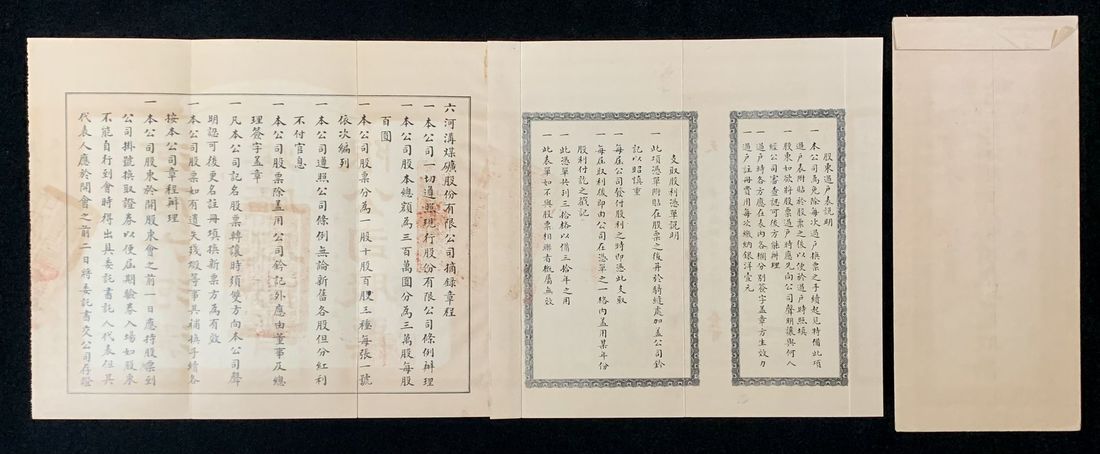 股東過戶表說明
一本公司為免除每次過戶換票之手續起見特備此項
過戶表附貼於股票之後以便於過戶時照填
一股東如欲將股票過戶時應先向公司聲明讓與何人
經公司審查認可後方能辦理
一過戶時各方應在表內各欄分別簽字蓋章方生效力
一過戶註冊費用每次繳納銀洋壹元
支取股利憑單說明
一此項憑單附貼在股票之後并於騎縫處加蓋公司鈐
記以昭慎重
一每屆公司發付股利之時即憑此支取
一每屆取利後即由公司在憑單之一格內蓋用某年份
股利付訖之戳記
一此憑單共列三拾格以備三拾年之用
一此表單如不與股票相聯者概屬無效
六河溝煤礦股份有限公司摘錄章程
一本公司一切遵照現行股份有限公司條例辦理
一本公司股本總額為三百萬圓分為三萬股每股
百圓
一本公司股票分為一股十股百股三種每張一號
依次編列
一本公司遵照公司條例無論新舊各股但分紅利
不付官息
一本公司股票除蓋用公司鈐記外應由董事及總
理簽字蓋章
一凡本公司記名股票轉讓時須雙方向本公司聲
明認可後更名註冊填換新票方為有效
一本公司股票如有遺失殘毀等事其補換手續各
按本公司章程辦理
一本公司股東於開股東會之前一日應持股票到
公司掛號換取證券以便屆期驗券入場如股東
不能自行到會時得出具委託書託人代表但其
代表人應於開會之前二日將委託書交公司存證